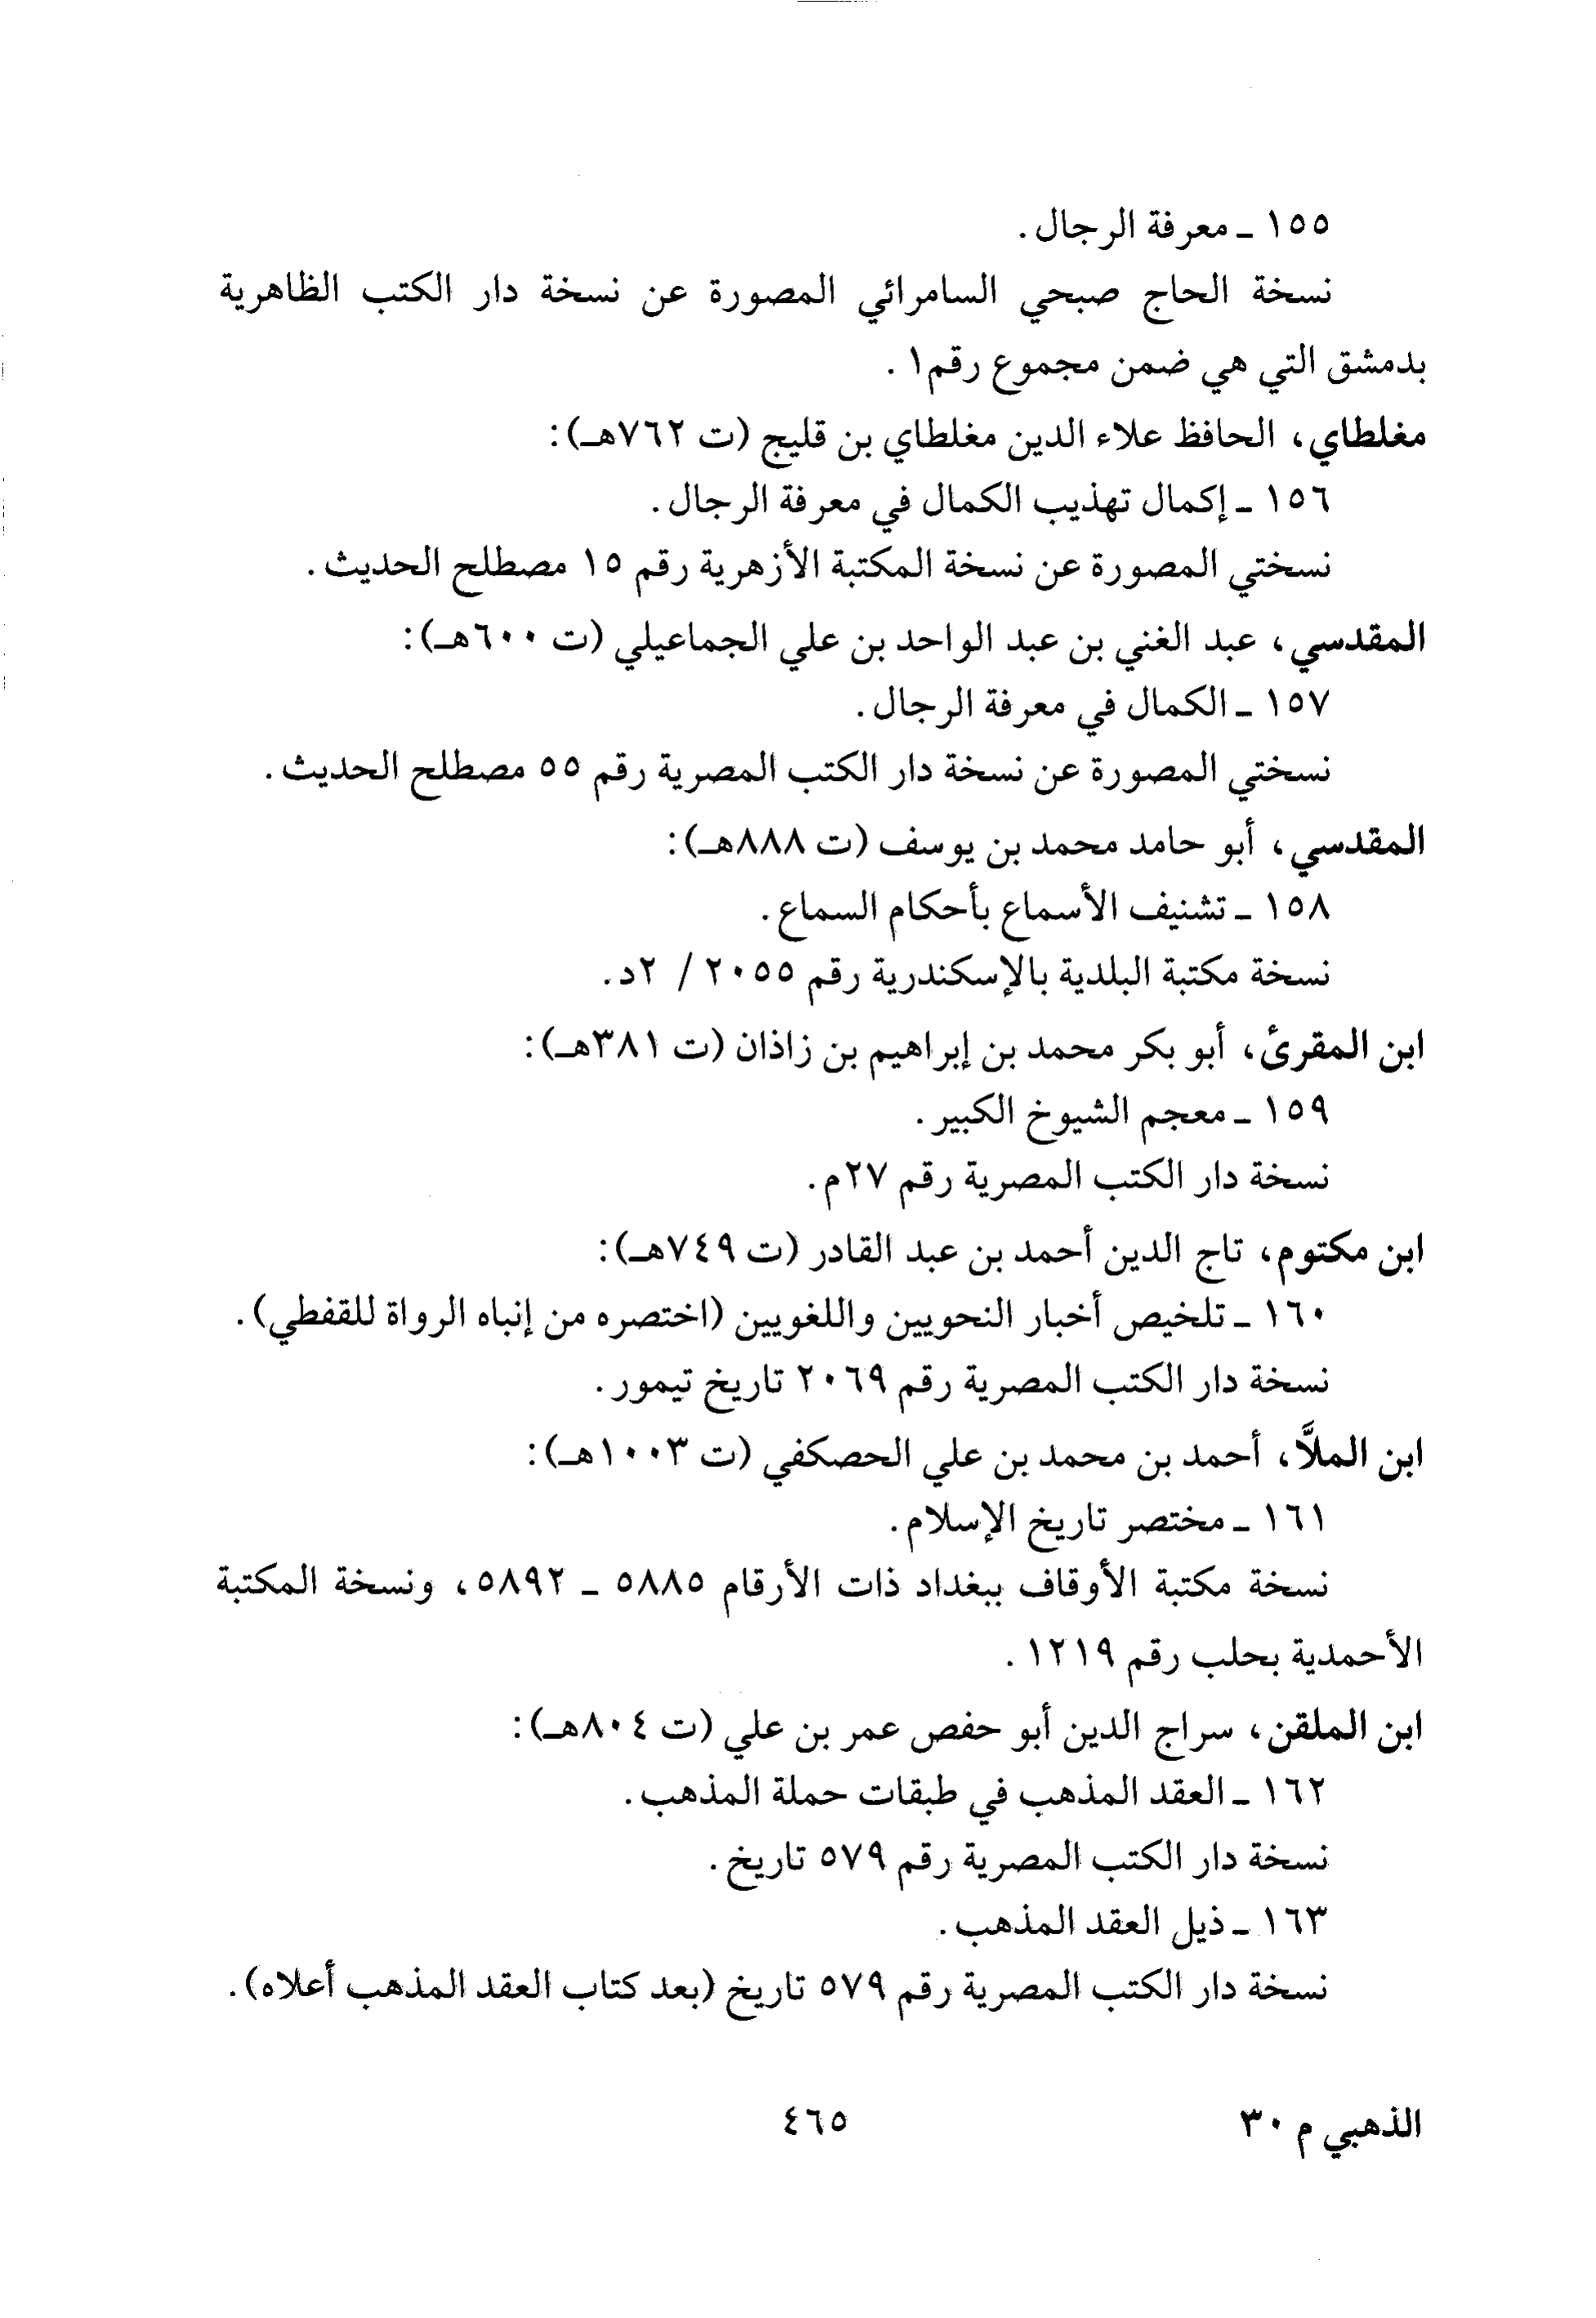 ١٥٥ ـ معرفة الرجال.
نسخة الحاج صبحي السامرائي المصورة عن نسخة دار الكتب الظاهرية
بدمشق التي هي ضمن مجموع رقم١ .
مغلطاي، الحافظ علاء الدين مغلطاي بن قليج (ت ٧٦٢هـ):
١٥٦ ـ إكمال تهذيب الكمال في معرفة الرجال.
نسختي المصورة عن نسخة المكتبة الأزهرية رقم ١٥ مصطلح الحديث.
المقدسي، عبد الغني بن عبد الواحد بن علي الجماعيلي (ت ٦٠٠هـ):
١٥٧ ـ الكمال في معرفة الرجال.
نسختي المصورة عن نسخة دار الكتب المصرية رقم ٥٥ مصطلح الحديث.
المقدسي، أبو حامد محمد بن يوسف (ت ٨٨٨هـ):
١٥٨ ـ تشنيف الأسماع بأحكام السماع.
نسخة مكتبة البلدية بالإسكندرية رقم ٢٠٥٥ / ٢د.
ابن المقرئ، أبو بكر محمد بن إبراهيم بن زاذان (ت ٣٨١هـ):
١٥٩ ـ معجم الشيوخ الكبير.
نسخة دار الكتب المصرية رقم ٢٧م.
ابن مكتوم، تاج الدين أحمد بن عبد القادر (ت ٧٤٩هـ):
١٦٠ ـ تلخيص أخبار النحويين واللغويين (اختصره من إنباه الرواة للقفطي).
نسخة دار الكتب المصرية رقم ٢٠٦٩ تاريخ تيمور.
ابن الملاَّ، أحمد بن محمد بن علي الحصكفي (ت ١٠٠٣هـ):
١٦١ ـ مختصر تاريخ الإسلام.
نسخة مكتبة الأوقاف ببغداد ذات الأرقام ٥٨٨٥ ـ ٥٨٩٢، ونسخة المكتبة
الأحمدية بحلب رقم ١٢١٩ .
ابن الملقن، سراج الدين أبو حفص عمر بن علي (ت ٨٠٤هـ):
١٦٢ ـ العقد المذهب في طبقات حملة المذهب.
نسخة دار الكتب المصرية رقم ٥٧٩ تاريخ.
١٦٣ ـ ذيل العقد المذهب.
نسخة دار الكتب المصرية رقم ٥٧٩ تاريخ (بعد كتاب العقد المذهب أعلاه).
الذهبي م ٣٠
٤٦٥